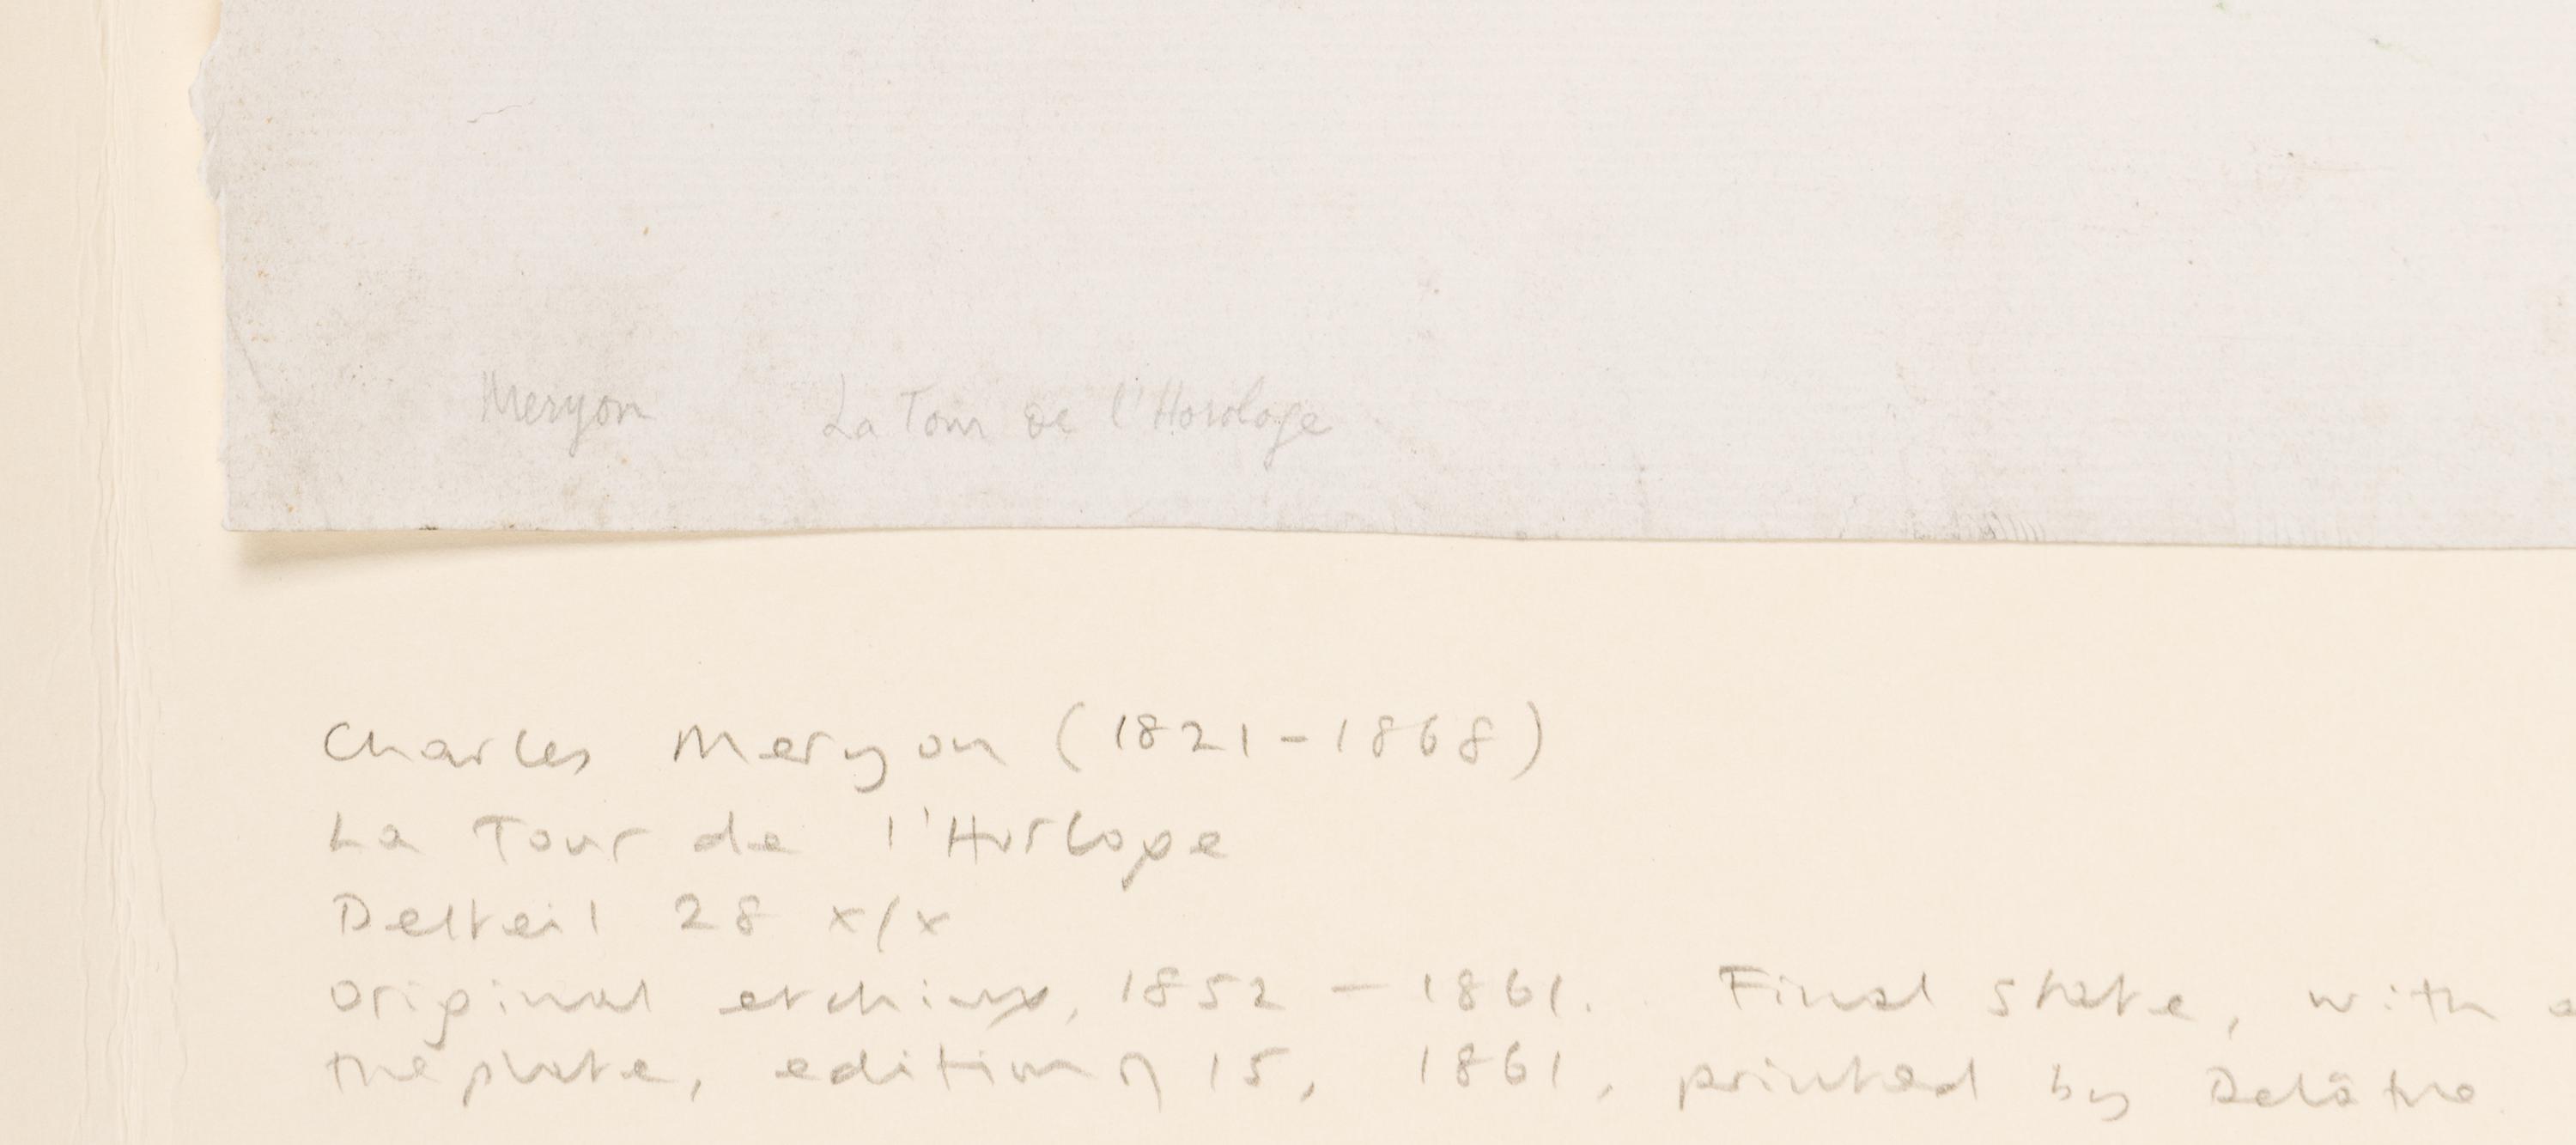 Meryon La Tour de l'Horologe
Charles Meryon (1821-1868)
La Tour de l'Horloge
Delteil 28 x/x
original etching, 1852 - 1861. Final state, with
the plate, edition of 15, 1861, printed by Delâtre